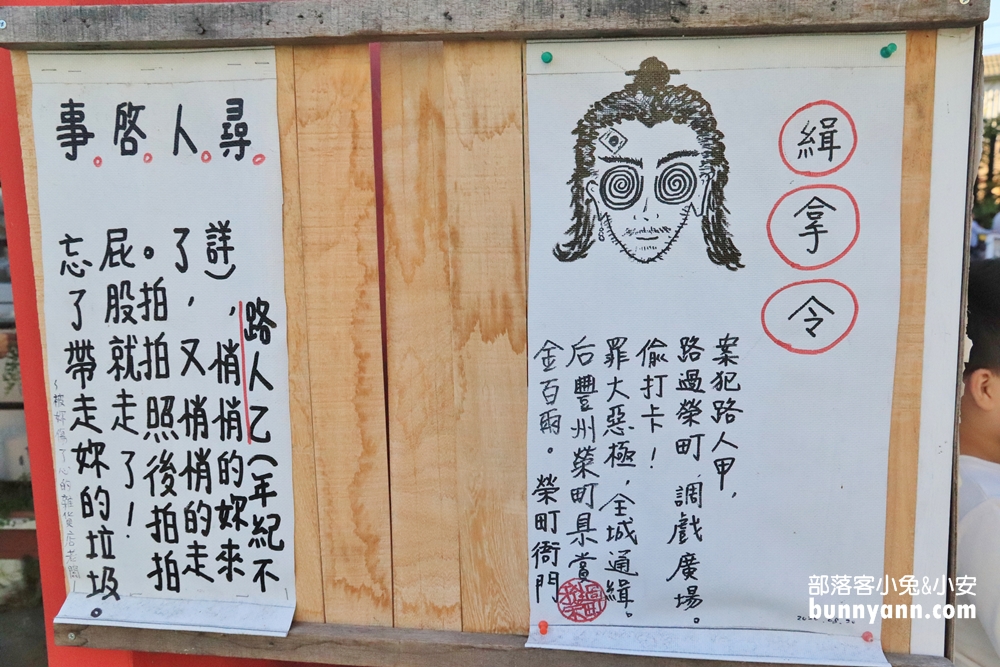 尋人啓事
路人乙(年紀不
詳),悄悄的妳來
了,又悄悄的走
。拍拍照後拍拍
屁股就走了!
忘了帶走妳的垃圾。
~被妳傷了心的雜貨店老闆~
緝拿令
案犯路人甲,
路過榮町,調戲廣場。
偷打卡!
罪大惡極,全城通緝。
后豐州榮町具賞
金百兩。榮町衙門
部落客小兔&小安
bunnyann.com